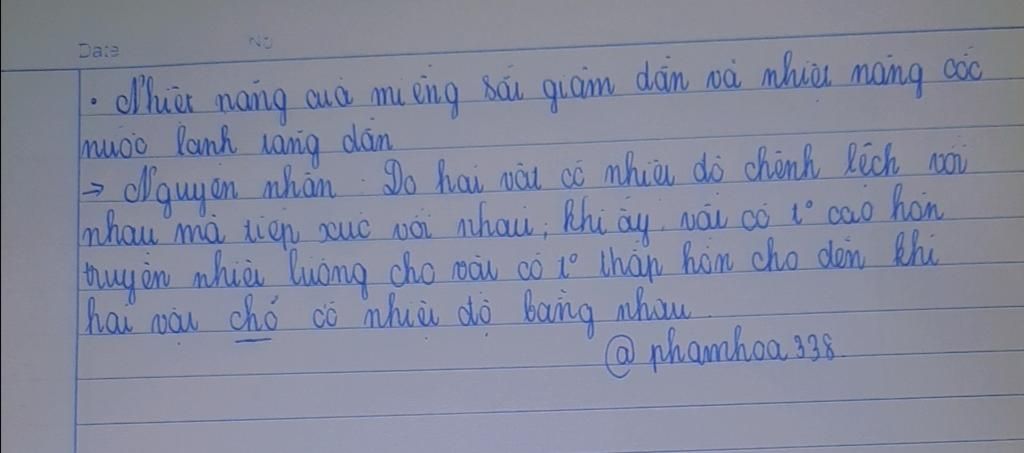 Date No
. Nhiệt năng của miếng sắt giảm dần và nhiệt năng cốc
nước lạnh tăng dần
→ Nguyên nhân: Do hai vật có nhiệt độ chênh lệch với
nhau mà tiếp xúc với nhau, khi ấy, vật có t° cao hơn
truyền nhiệt lượng cho vật có t° thấp hơn cho đến khi
hai vật chó có nhiệt độ bằng nhau.
@phamhoa338